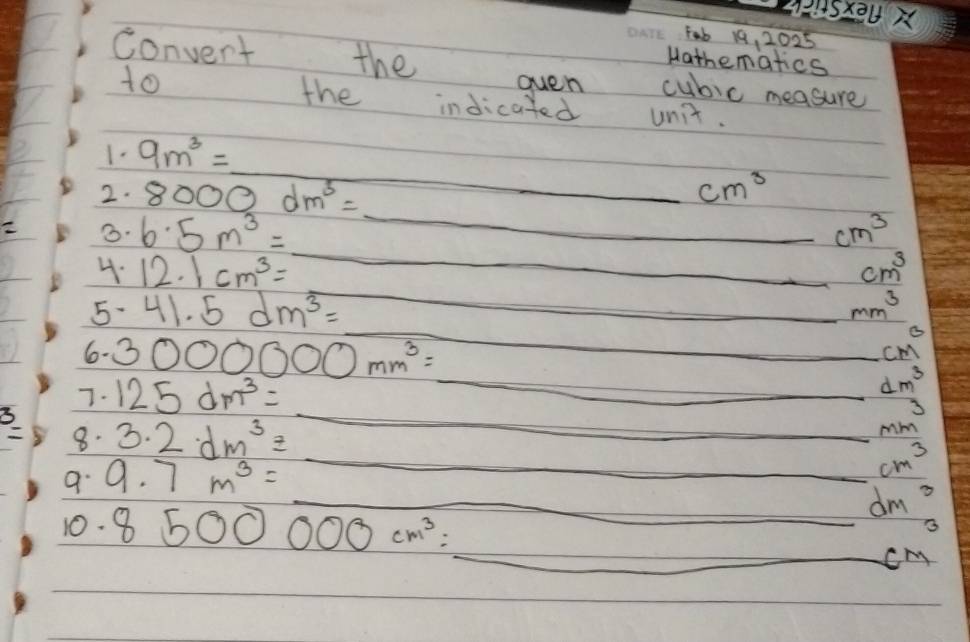 FlexStick
DATE Feb 19, 2025
Mathematics
Convert the guen cubic measure
to the indicated unit.
1. 9m³ = ____________ cm³
2. 8000 dm³ = ____________ cm³
3. 6.5 m³ = ____________ cm³
4. 12.1 cm³ = ____________ mm³
5. 41.5 dm³ = ____________ cm³
6. 3000000 mm³ = ____________ dm³
7. 125 dm³ = ____________ mm³
8. 3.2 dm³ = ____________ cm³
9. 9.7 m³ = ____________ dm³
10. 8 500 000 cm³ = ____________ cm³